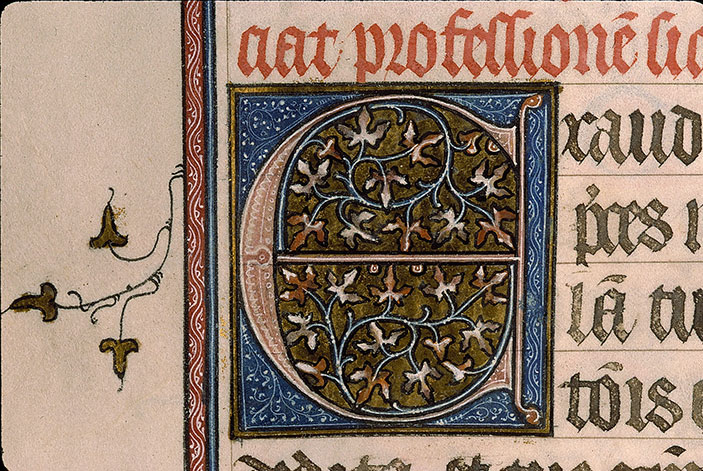 ciat professionē sic
Exaud
p̄ces n
lā tu
tōis